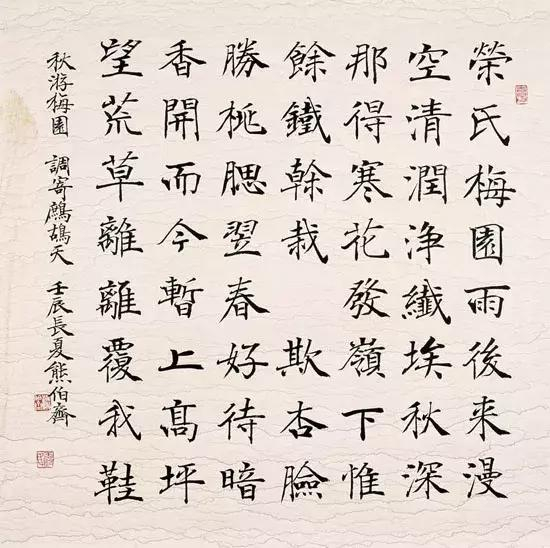 榮氏梅園雨後来漫
空清潤浄纖埃秋深
那得寒花發嶺下惟
餘鐵幹栽 欺杏臉
勝桃腮翌春好待暗
香開而今暫上髙坪
望荒草離離覆我鞋
秋游梅園 調寄鷓鴣天 壬辰長夏熊伯齊